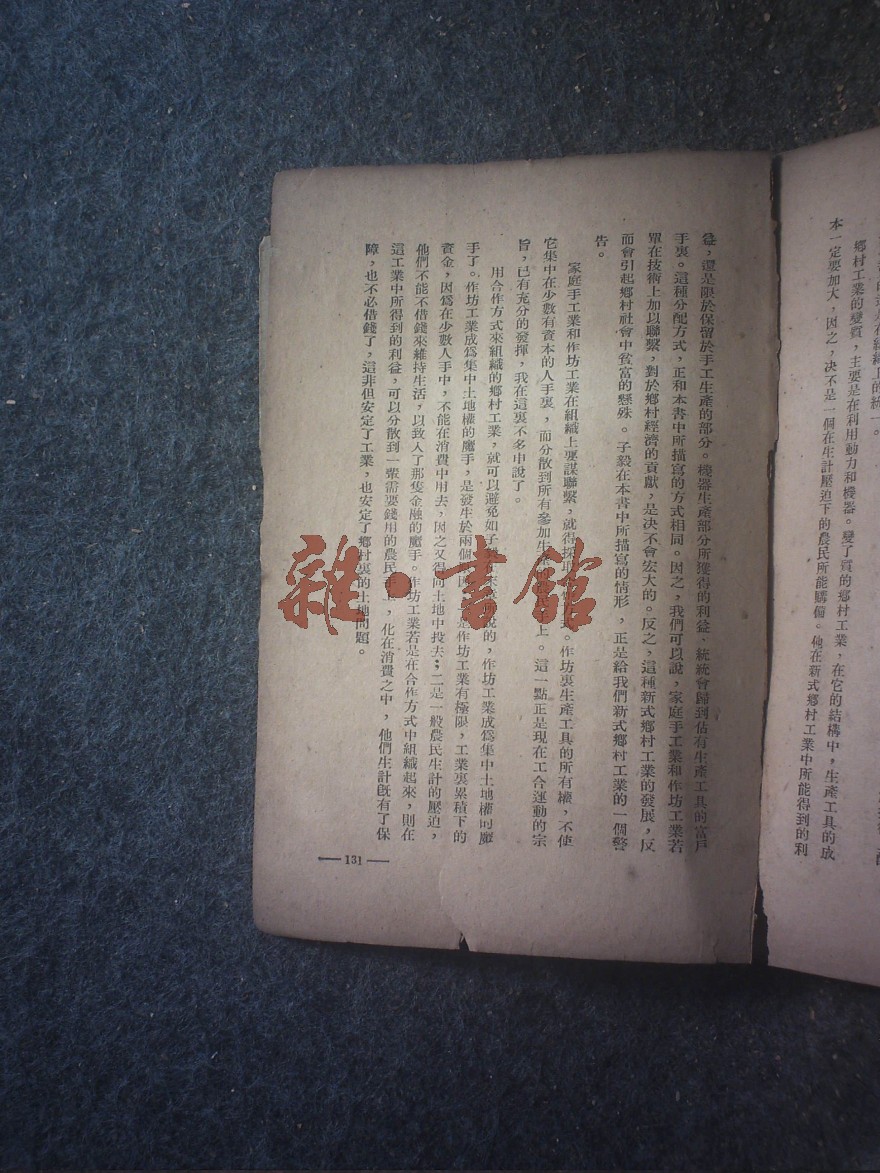 鄉村工業的變質，主要是在利用動力和機器。變了質的鄉村工業，在它的結構中，生產工具的成
本一定要加大，因之，決不是一個在生計壓迫下的農民所能購備。他在新式鄉村工業中所能得到的利
益，還是限於保留於手工生產的部分。機器生產部分所獲得的利益，統統會歸到佔有生產工具的富戶
手裏。這種分配方式，正和本書中所描寫的方式相同。因之，我們可以說，家庭手工業和作坊工業若
單在技術上加以聯繫，對於鄉村經濟的貢獻，是決不會宏大的。反之，這種新式鄉村工業的發展，反
而會引起鄉村社會中貧富的懸殊。子毅在本書中所描寫的情形，正是給我們新式鄉村工業的一個警
告。
家庭手工業和作坊工業在組織上要謀聯繫，就得採取。作坊裏生產工具的所有權，不使
它集中在少數有資本的人手裏，而分散到所有參加生上。這一點正是現在工合運動的宗
旨，已有充分的發揮，我在這裏不多申說了。
用合作方式來組織的鄉村工業，就可以避免如子說的，作坊工業成為集中土地權的魔
手了。作坊工業成為集中土地權的魔手，是發生於兩個作坊工業有極限，工業裏累積下的
資金，因為在少數人手中，不能在消費中用去，因之又得向土地中投去；二是一般農民生計的壓迫，
他們不能不借錢來維持生活，以致入了那隻金融的魔手。作坊工業若是在合作方式中組織起來，則在
這工業中所得到的利益，可以分散到一輩需要錢用的農民手上，化在消費之中，他們生計既有了保
障，也不必借錢了，這非但安定了工業，也安定了鄉村裏的土地問題。
— 131 —
雜·書館